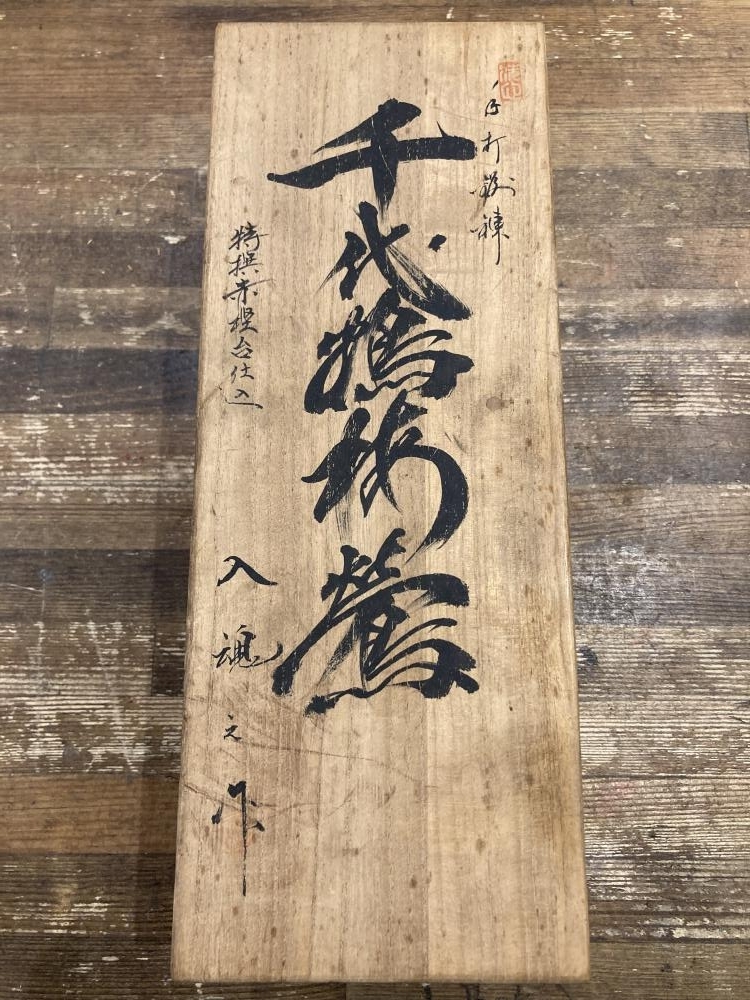 手打鍛錬
千代鶴 鶯
特撰赤樫台仕込
入魂之作